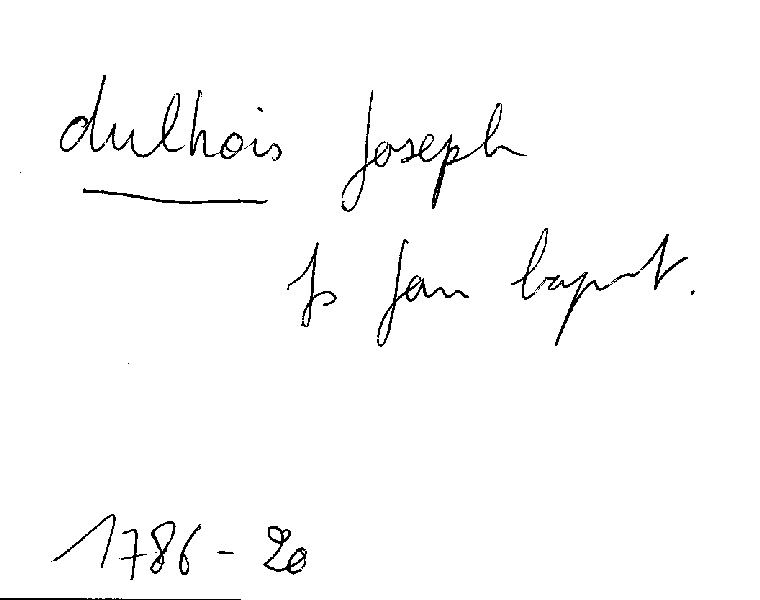 dulhois Joseph
fs Jan bapt.
1786 - 20